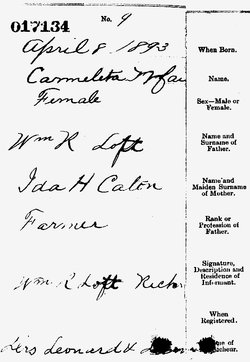 No. 9
017134
April 8 1893
When Born.
Carmeleta
Name.
Female
Sex—Male or
Female.
Wm R Loft
Name and
Surname of
Father.
Ida H Caton
Name and
Maiden Surname
of Mother.
Farmer
Rank or
Profession of
Father.
Signature,
Description and
Residence of
Informant.
Wm R Loft
When
Registered.
Leonard